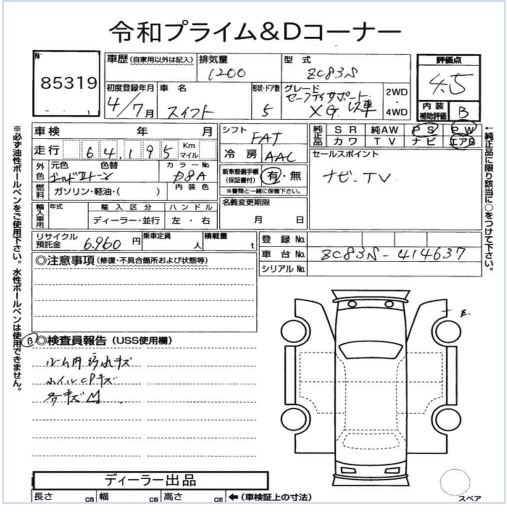 令和プライム＆Dコーナー
No
85319
車歴 (自家用以外は記入) 排気量 型式 評価点
1200 ZC83S 4.5
初度登録年月 車名 形状・ドア数 グレード 2WD・4WD 内装補助評価 B
4/7月 スイフト 5 セーフティサポート XG 車
車検 年 月 シフト FAT 純正品 SR 純AW PS PW
走行 64,195 Km マイル 冷房 AAC カワ TV ナビ エアB
外色 元色 色替 カラーNo セールスポイント
D8A ナビ、TV
燃料 ガソリン・軽油・( ) 内装色
新車整備手帳(保証書付) 有・無
※書類と一緒に保管下さい。
輸入車用 年式 輸入区分 ハンドル 名義変更期限
ディーラー・並行 左・右 月 日
リサイクル預託金 6,960円 乗車定員 人 積載量 t
登録No
車台No ZC83S-414637
シリアルNo
◎注意事項 (修復・不具合箇所および状態等)
B ◎検査員報告 (USS使用欄)
ルーム内汚れキズ
ホイルCPキズ
ディーラー出品
長さ cm 幅 cm 高さ cm ←(車検証上の寸法)
スペア
※必ず油性ボールペンをご使用下さい。水性ボールペンは使用できません。
←純正品に限り該当に○をつけて下さい。